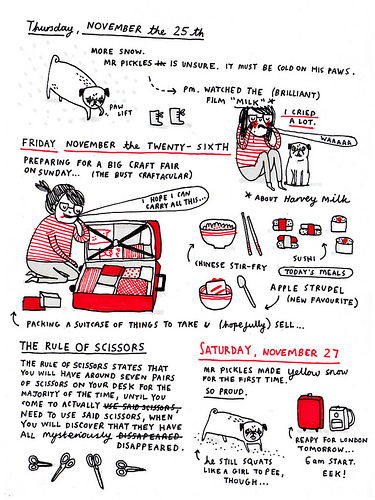 Thursday, NOVEMBER the 25th
MORE SNOW.
MR PICKLES IS UNSURE. IT MUST BE COLD ON HIS PAWS.
PAW
LIFT
PM. WATCHED THE (BRILLIANT)
FILM "MILK"*
I CRIED
A LOT.
WAAAAA
* ABOUT Harvey Milk
FRIDAY NOVEMBER the TWENTY-SIXTH
PREPARING FOR A BIG CRAFT FAIR
ON SUNDAY... (THE BUST CRAFTACULAR)
I HOPE I CAN
CARRY ALL THIS...
CHINESE STIR-FRY
SUSHI
TODAY'S MEALS
APPLE STRUDEL
(NEW FAVOURITE)
PACKING A SUITCASE OF THINGS TO TAKE & (hopefully) SELL...
THE RULE OF SCISSORS
THE RULE OF SCISSORS STATES THAT
YOU WILL HAVE AROUND SEVEN PAIRS
OF SCISSORS ON YOUR DESK FOR THE
MAJORITY OF TIME, UNTIL YOU
COME TO ACTUALLY USE SAID SCISSORS,
NEED TO USE SAID SCISSORS, WHEN
YOU WILL DISCOVER THAT THEY HAVE
ALL mysteriously DISSAPEARED
DISAPPEARED.
SATURDAY, NOVEMBER 27
MR PICKLES MADE yellow snow
FOR THE FIRST TIME.
SO PROUD.
he STILL SQUATS
LIKE A GIRL TO PEE,
THOUGH...
READY FOR LONDON
TOMORROW...
6am START.
EEK!